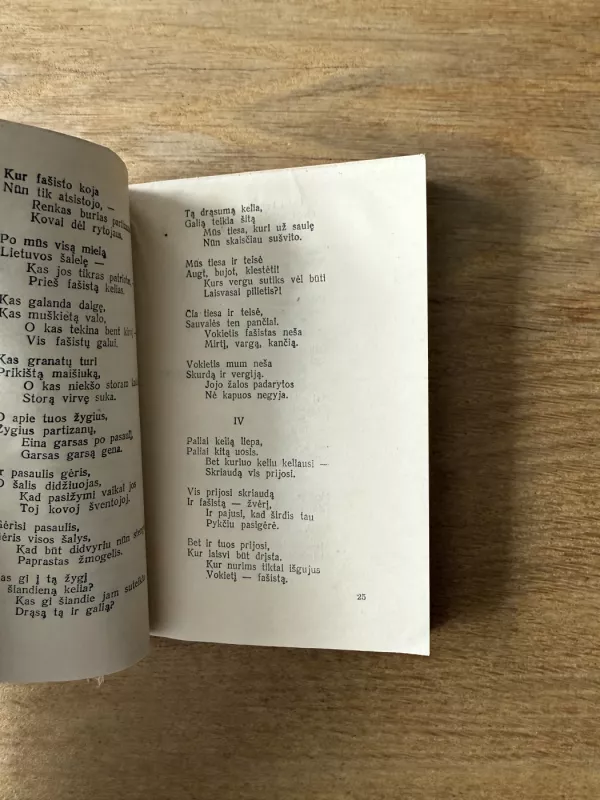 Kur fašisto koja
Nūn tik atsistojo, —
Renkas burias
Kovai dėl rytojaus.
Po mūs visą mielą
Lietuvos šalelę —
Kas jos tikras
Prieš fašistą kelias.
Kas galanda dalgę,
Kas muškietą valo,
O kas tekina bent
Vis fašistų galui.
Kas granatų turi
Prikištą maišiuką,
O kas niekšo storam
Storą virvę suka.
O apie tuos žygius,
Žygius partizanų,
Eina garsas po
Garsas garsą gena.
Ir pasaulis gėris,
O šalis didžiuojas,
Kad pasižymi vaikai jos
Toj kovoj šventojoj.
Gėrisi pasaulis,
Gėris visos šalys,
Kad būt didvyriu nūn
Paprastas žmogelis.
Kas gi į tą žygį
šiandieną kelia?
Kas gi šiandie jam
Drąsą tą ir galią?
Tą drąsumą kelia,
Galią teikia šitą
Mūs tiesa, kuri už saulę
Nūn skaisčiau sušvito.
Mūs tiesa ir teisė
Augt, bujot, klestėti!
Kurs vergu sutiks vėl būti
Laisvasai pilietis?!
Čia tiesa ir teisė,
Sauvalės ten pančiai.
Vokietis fašistas neša
Mirtį, vargą, kančią.
Vokietis mum neša
Skurdą ir vergiją.
Jojo žalos padarytos
Nė kapuos negyja.
IV
Paliai kelią liepa,
Paliai kitą uosis.
Bet kuriuo keliu keliausi —
Skriaudą vis prijosi.
Vis prijosi skriaudą
Ir fašistą — žvėrį,
Ir pajusi, kad širdis tau
Pykčiu pasigėrė.
Bet ir tuos prijosi,
Kur laisvi būt drįsta.
Kur nurims tiktai išgujus
Vokietį — fašistą.
25